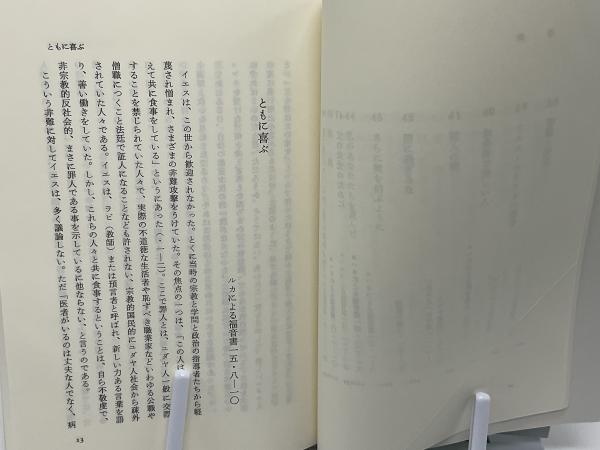 ともに喜ぶ
ともに喜ぶ
ルカによる福音書一五・八―一〇
イエスは、この世から歓迎されなかった。とくに当時の宗教と学問と政治の指導者たちから軽
蔑され憎まれ、さまざまの非難攻撃をうけていた。その焦点の一つは、「この人は
えて共に食事をしている」というにあった(・一―二)。ここで罪人とは、ユダヤ人一般に交際
することを禁じられていた人々で、実際の不道徳な生活者や恥ずべき職業家などいわゆる公職や
僧職につくこと法廷で証人になることなども許されない、宗教的国民的にユダヤ人社会から疎外
されていた人々である。イエスは、ラビ(教師)または預言者と呼ばれ、新しい力ある言葉を語
り、善い働きをしていた。しかし、これらの人々と共に食事するということは、自ら不敬虔で、
非宗教的反社会的、まさに罪人である事を示しているに他ならない、と言うのである。
こういう非難に対してイエスは、多く議論しない。ただ「医者がいるのは丈夫な人でなく、病
23